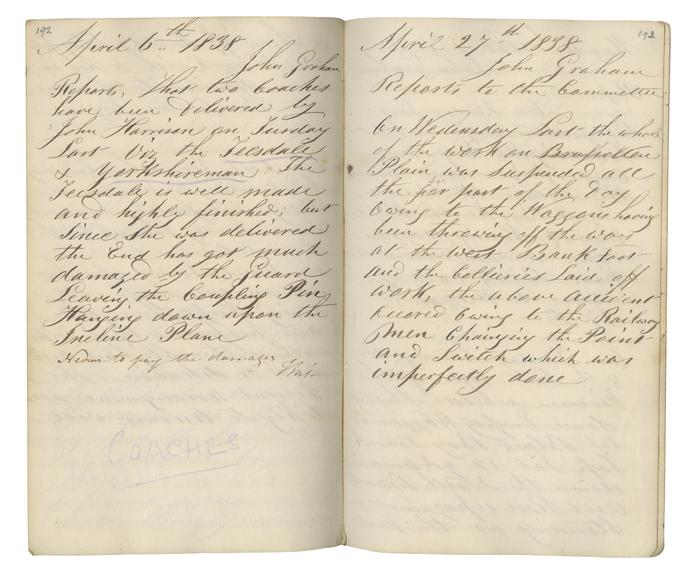 192
April 6th 1838
John Graham
Reports, That two Coaches
have been Delivered by
John Harrison on Tusday
Last Viz the Teesdale
& Yorkshireman The
Teesdale is well made
and highly finished; but
Since She was delivered
the End has got much
damaged by the Guard
Leaving the Coupling Pin
Hanging down upon the
Incline Plane
to pay the damages
COACHES
192
April 27th 1838
John Graham
Reports to the Committee
On Wedensday Last the whole
of the work on Brusselton
Plain was Suspended all
the for part of the Day
Owing to the Waggons having
been throwing off the way
at the west Bank foot
and the Collieries Laid off
work, the above accident
occured Owing to the Railway
Men Changing the Point
and Switch which was
imperfectly done